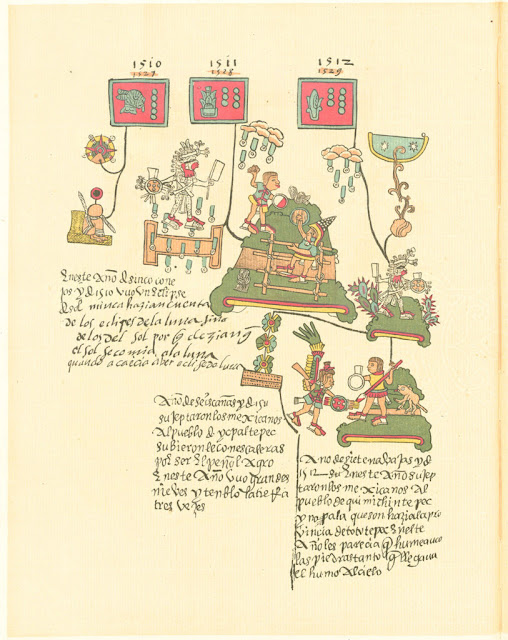 1510
1527
1511
1528
1512
1529
Eneste Año de sinco cone
jos y d 1510 vuo vn eclipse
de sol nunca hazian cuenta
de los eclipes de la luna sino
de los del sol por q dezian q
el sol se comia a la luna
quando acaecia aber eclise de luna
Año de seis cañas y d 151
su septaron los mexicanos
Al pueblo d ycpaltepec
subieron le con escaleras
por ser El peñol Agro
Eneste Año vuo grandes
nieves y tenblo la tierra
tres vezes
Ano de siete nabajas y d
1512 Eneste Año sujep
taron los mexicanos Al
pueblo de quimichintepec
y nopala que son hazia la pro
vincia de tototepec Eneste
Año les parecia q humeava
las piedras tanto q llegava
el humo Al cielo